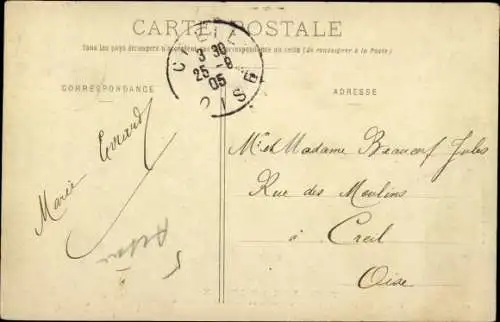 CARTE POSTALE
Tous les pays étrangers n'acceptent pas la correspondance au recto (Se renseigner à la Poste)
CORRESPONDANCE
ADRESSE
CREIL
3 30
25 - 8
05
OISE
Marie Evrard
Mr et Madame Beaucerf Jules
Rue des Moulins
à Creil
Oise
5